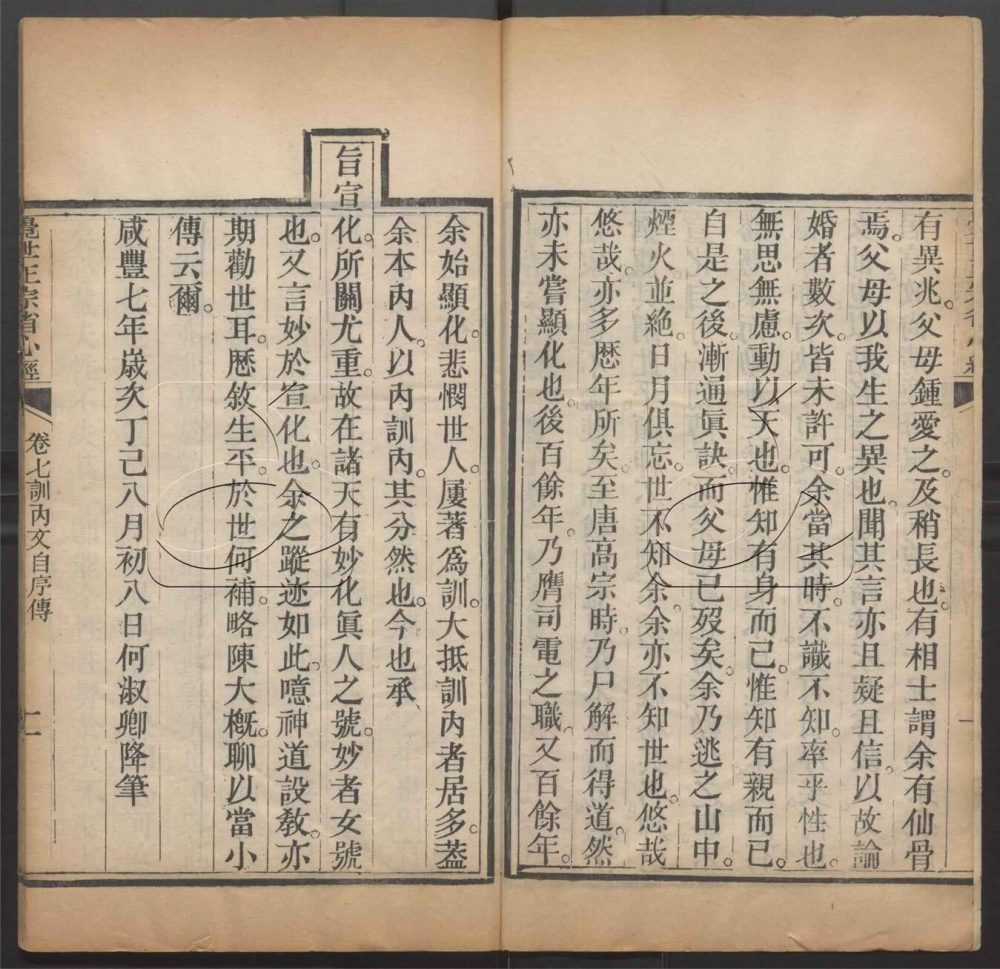 有異兆。父母鍾愛之。及稍長也。有相士謂余有仙骨
焉。父母以我生之異也。聞其言亦且疑且信。以故論
婚者數次。皆未許可。余當其時。不識不知。率乎性也。
無思無慮。動以天也。惟知有身而已。惟知有親而已。
自是之後。漸通眞訣。而父母已歿矣。余乃逃之山中。
煙火並絶。日月俱忘。世不知余。余亦不知世也。悠哉
悠哉。亦多歷年所矣。至唐高宗時。乃尸解而得道。然
亦未嘗顯化也。後百餘年。乃膺司電之職。又百餘年。
余始顯化。悲憫世人。屢著爲訓。大抵訓內者居多。葢
余本內人。以內訓內。其分然也。今也承
旨宣化。所關尤重。故在諸天有妙化眞人之號。妙者女號
也。又言妙於宣化也。余之蹤迹如此。噫神道設敎。亦
期勸世耳。歷敘生平。於世何補。略陳大槪。聊以當小
傳云爾。
咸豐七年歲次丁己八月初八日何淑卿降筆
覺世正宗省心經
卷七訓內文自序傳
二